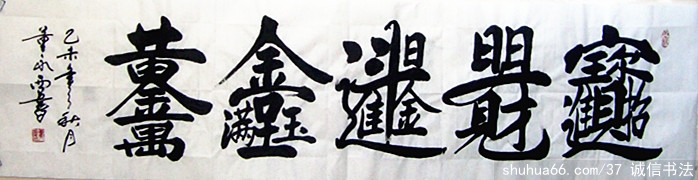 招財進寶 日日見財 日進斗金 金玉满堂 黃金萬兩
乙未年之秋月
shuhua66.com/37 诚信书法